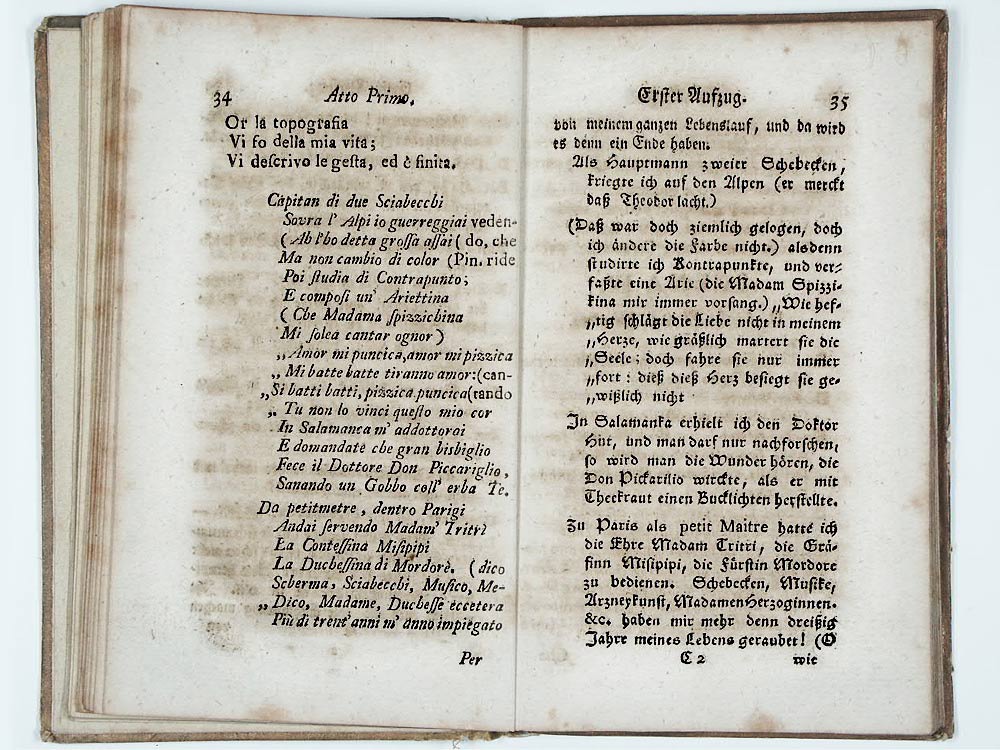 34 Atto Primo.
Or la topografia
Vi fo della mia vita;
Vi deſcrivo le geſta, ed è finita.
Capitan di due Sciabecchi
Sovra l' Alpi io guerreggiai veden-
( Ah l'ho detta groſſa aſſai ( do, che
Ma non cambio di color (Pin. ride
Poi ſtudia di Contrapunto;
E compoſi un' Ariettina
( Che Madama ſpizzichina
Mi ſolea cantar ognor )
„Amor mi puncica, amor mi pizzica
„ Mi batte batte tiranno amor:(can-
„Si batti batti, pizzica puncica(tando
„ Tu non lo vinci queſto mio cor
In Salamanca m' addottorai
E domandate che gran bisbiglio
Fece il Dottore Don Piccariglio,
Sanando un Gobbo coll' erba Te.
Da petitmetre, dentro Parigi
Andai ſervendo Madam' Tritrì
La Conteſſina Miſipipi
La Ducheſſina di Mordorè. (dico
Scherma, Sciabecchi, Muſico, Me-
„Dico, Madame, Ducheſſe eccetera
Più di trent' anni m' anno impiegato
Per
Erſter Aufzug. 35
von meinem ganzen Lebenslauf, und da wird
es denn ein Ende haben.
Als Hauptmann zweier Schebecken,
kriegte ich auf den Alpen (er merckt
daß Theodor lacht.)
(Daß war doch ziemlich gelogen, doch
ich ändere die Farbe nicht.) alsdenn
ſtudirte ich Kontrapunkte, und ver-
faßte eine Arie (die Madam Spizzi-
kina mir immer vorſang.) „Wie hef-
„tig ſchlägt die Liebe nicht in meinem
„Herze, wie gräßlich martert ſie die
„Seele; doch fahre ſie nur immer
„fort: dieß dieß Herz beſiegt ſie ge-
„wißlich nicht
In Salamanka erhielt ich den Doktor
Hut, und man darf nur nachforſchen,
ſo wird man die Wunder hören, die
Don Pickarilio wirckte, als er mit
Theekraut einen Bucklichten herſtellte.
Zu Paris als petit Maitre hatte ich
die Ehre Madam Tritri, die Grä-
finn Miſipipi, die Fürſtin Mordore
zu bedienen. Schebecken, Muſike,
Arzneykunſt, Madamen Herzoginnen.
&c. haben mir mehr denn dreißig
Jahre meines Lebens geraubet! (O
C 2 wie